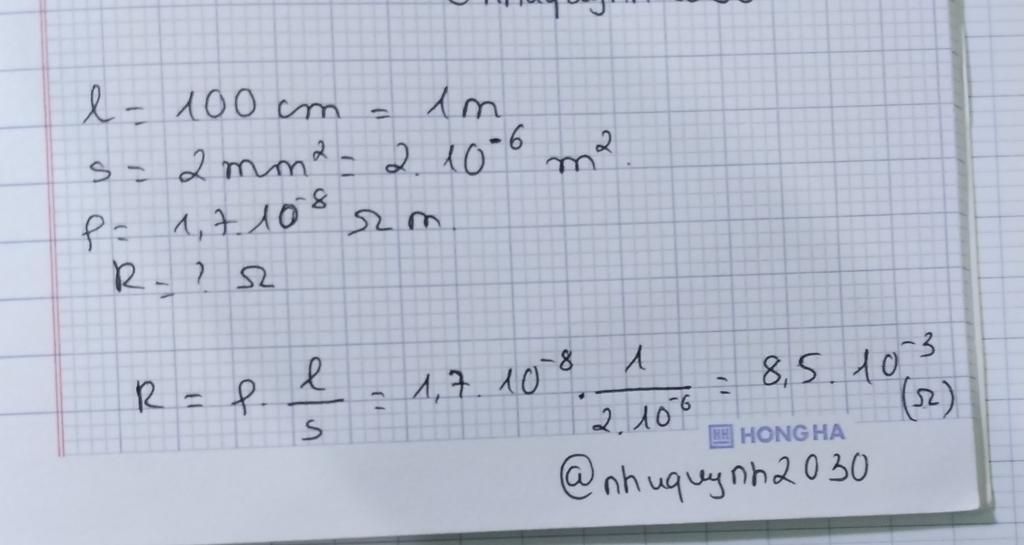 l = 100 cm = 1m
s = 2 mm² = 2. 10⁻⁶ m².
ρ = 1,7.10⁻⁸ Ω m.
R = ? Ω
R = ρ. l/s = 1,7. 10⁻⁸ . 1/2.10⁻⁶ = 8,5. 10⁻³ (Ω)
HH HONG HA
@nhuquynh2030